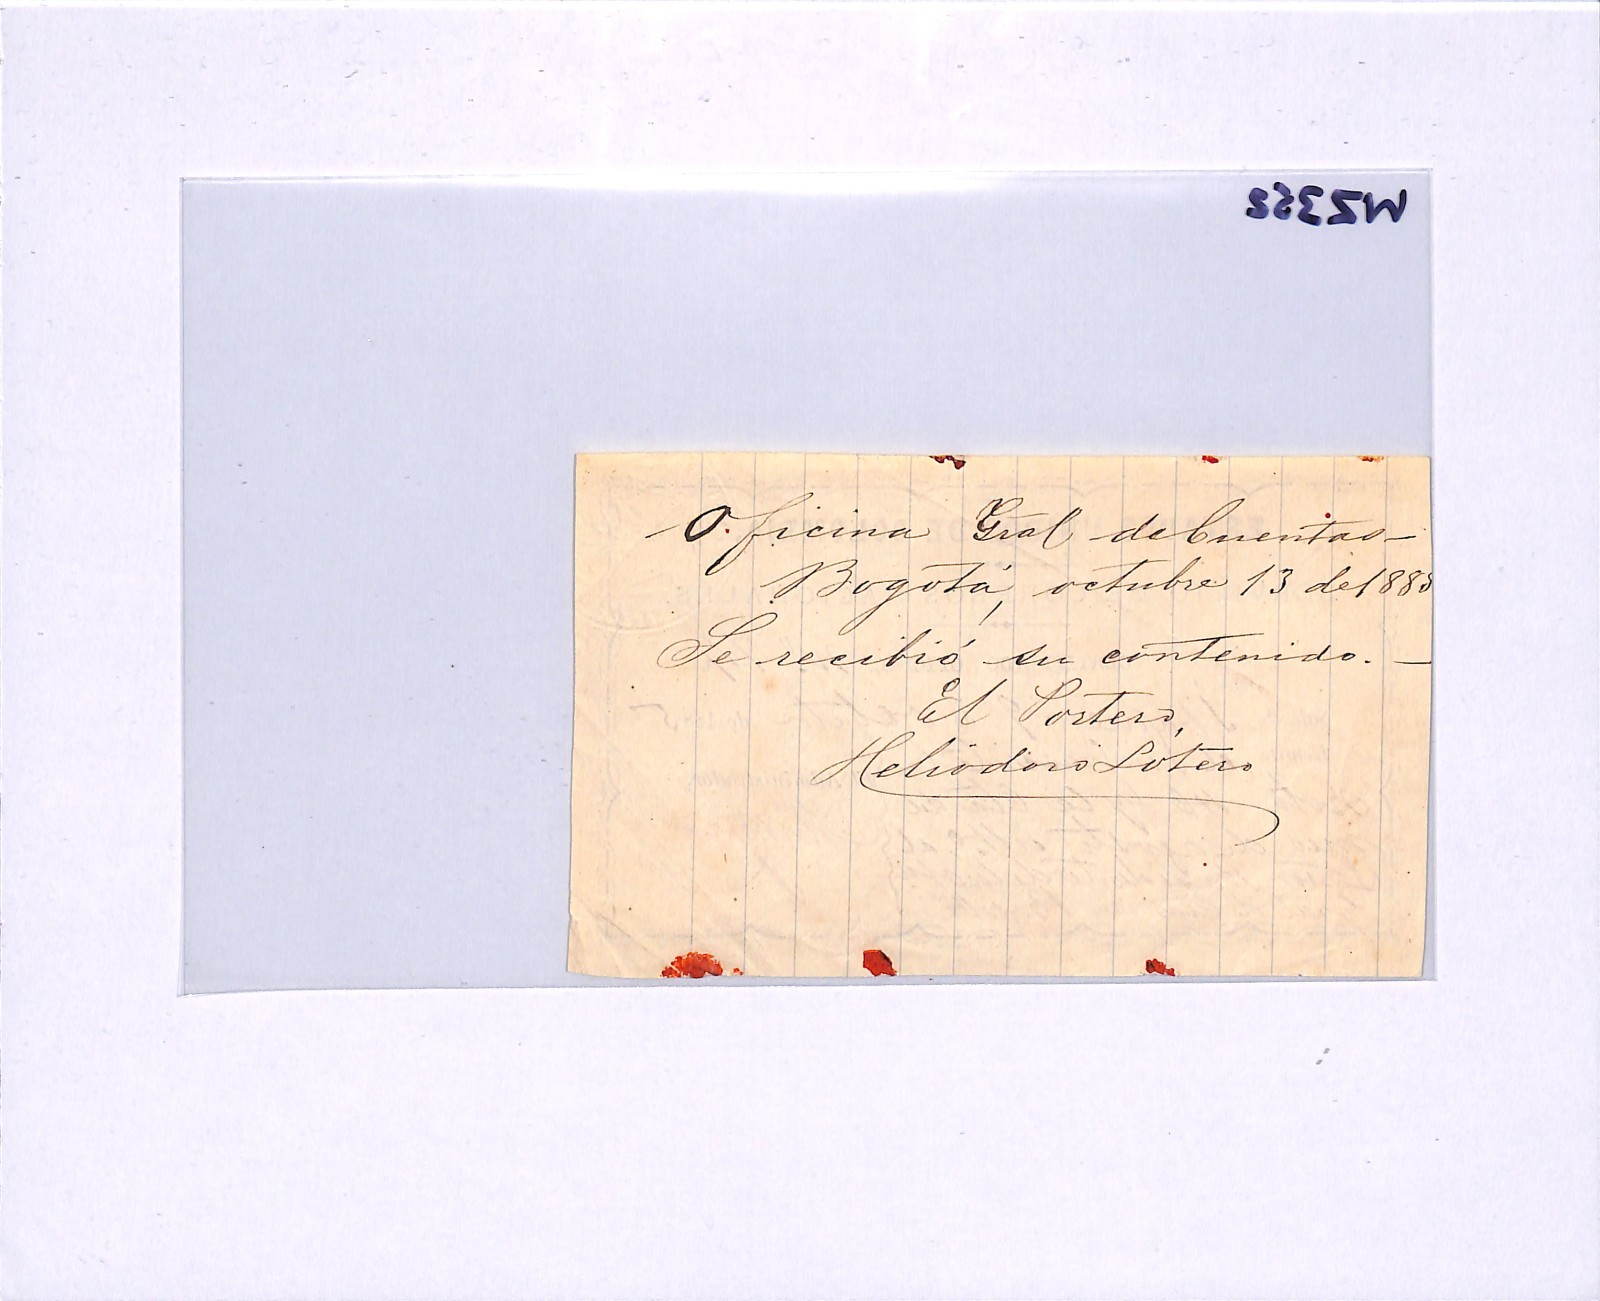 WZ352
Oficina Gral de Cuentas—
Bogotá, octubre 13 de 1885
Se recibió su contenido.—
El Portero,
Heliodoro Lotero